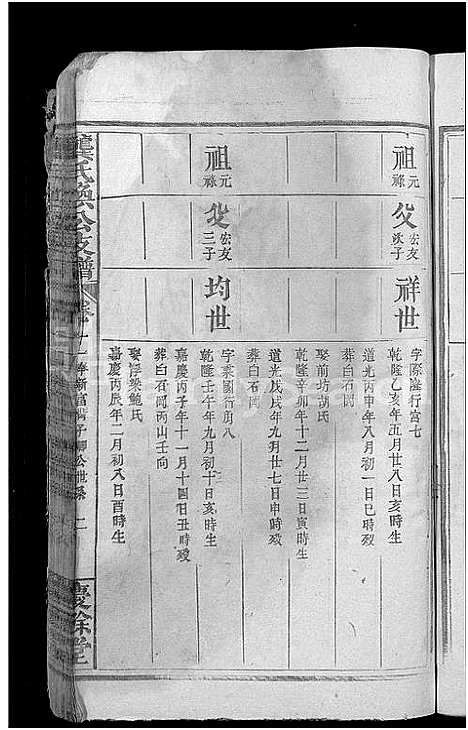 祖 元祿
父 宏友次子
祥世
字際隆行宮七
乾隆乙亥年五月廿八日亥時生
道光丙申年八月初一日巳時歿
葬白石岡
娶前坊胡氏
乾隆辛卯年十二月廿三日寅時生
道光戊戌年九月廿七日申時歿
葬白石岡
祖 元祿
父 宏友三子
均世
乾隆壬午年九月初十日亥時生
嘉慶丙子年十一月十四日丑時歿
葬白石岡丙山壬向
娶浮梁鮑氏
嘉慶丙辰年二月初八日酉時生
龔氏 公支譜
公世系 二
慶餘堂